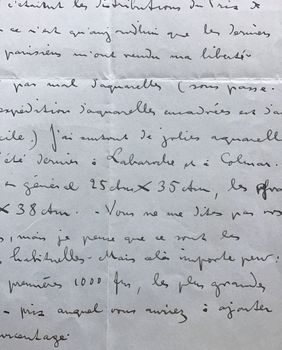 c'étaient les distributions du Prix de
ce n'est qu'aujourd'hui que les derniers
parisiens m'ont rendu ma liberté
pas mal d'aquarelles (sous passe.
expédition d'aquarelles encadrées est d'a
cile) J'ai surtout de jolies aquarell
été dernier à Labaroche et à Colmar.
général 25ctm X 35ctm, les
X 38ctm. - Vous ne me dites pas vos
s, mais je pense que ce sont les
habituelles - Mais cela importe peu:
premières 1000 frs, les plus grandes
- prix auquel vous auriez à ajouter
ourcentage